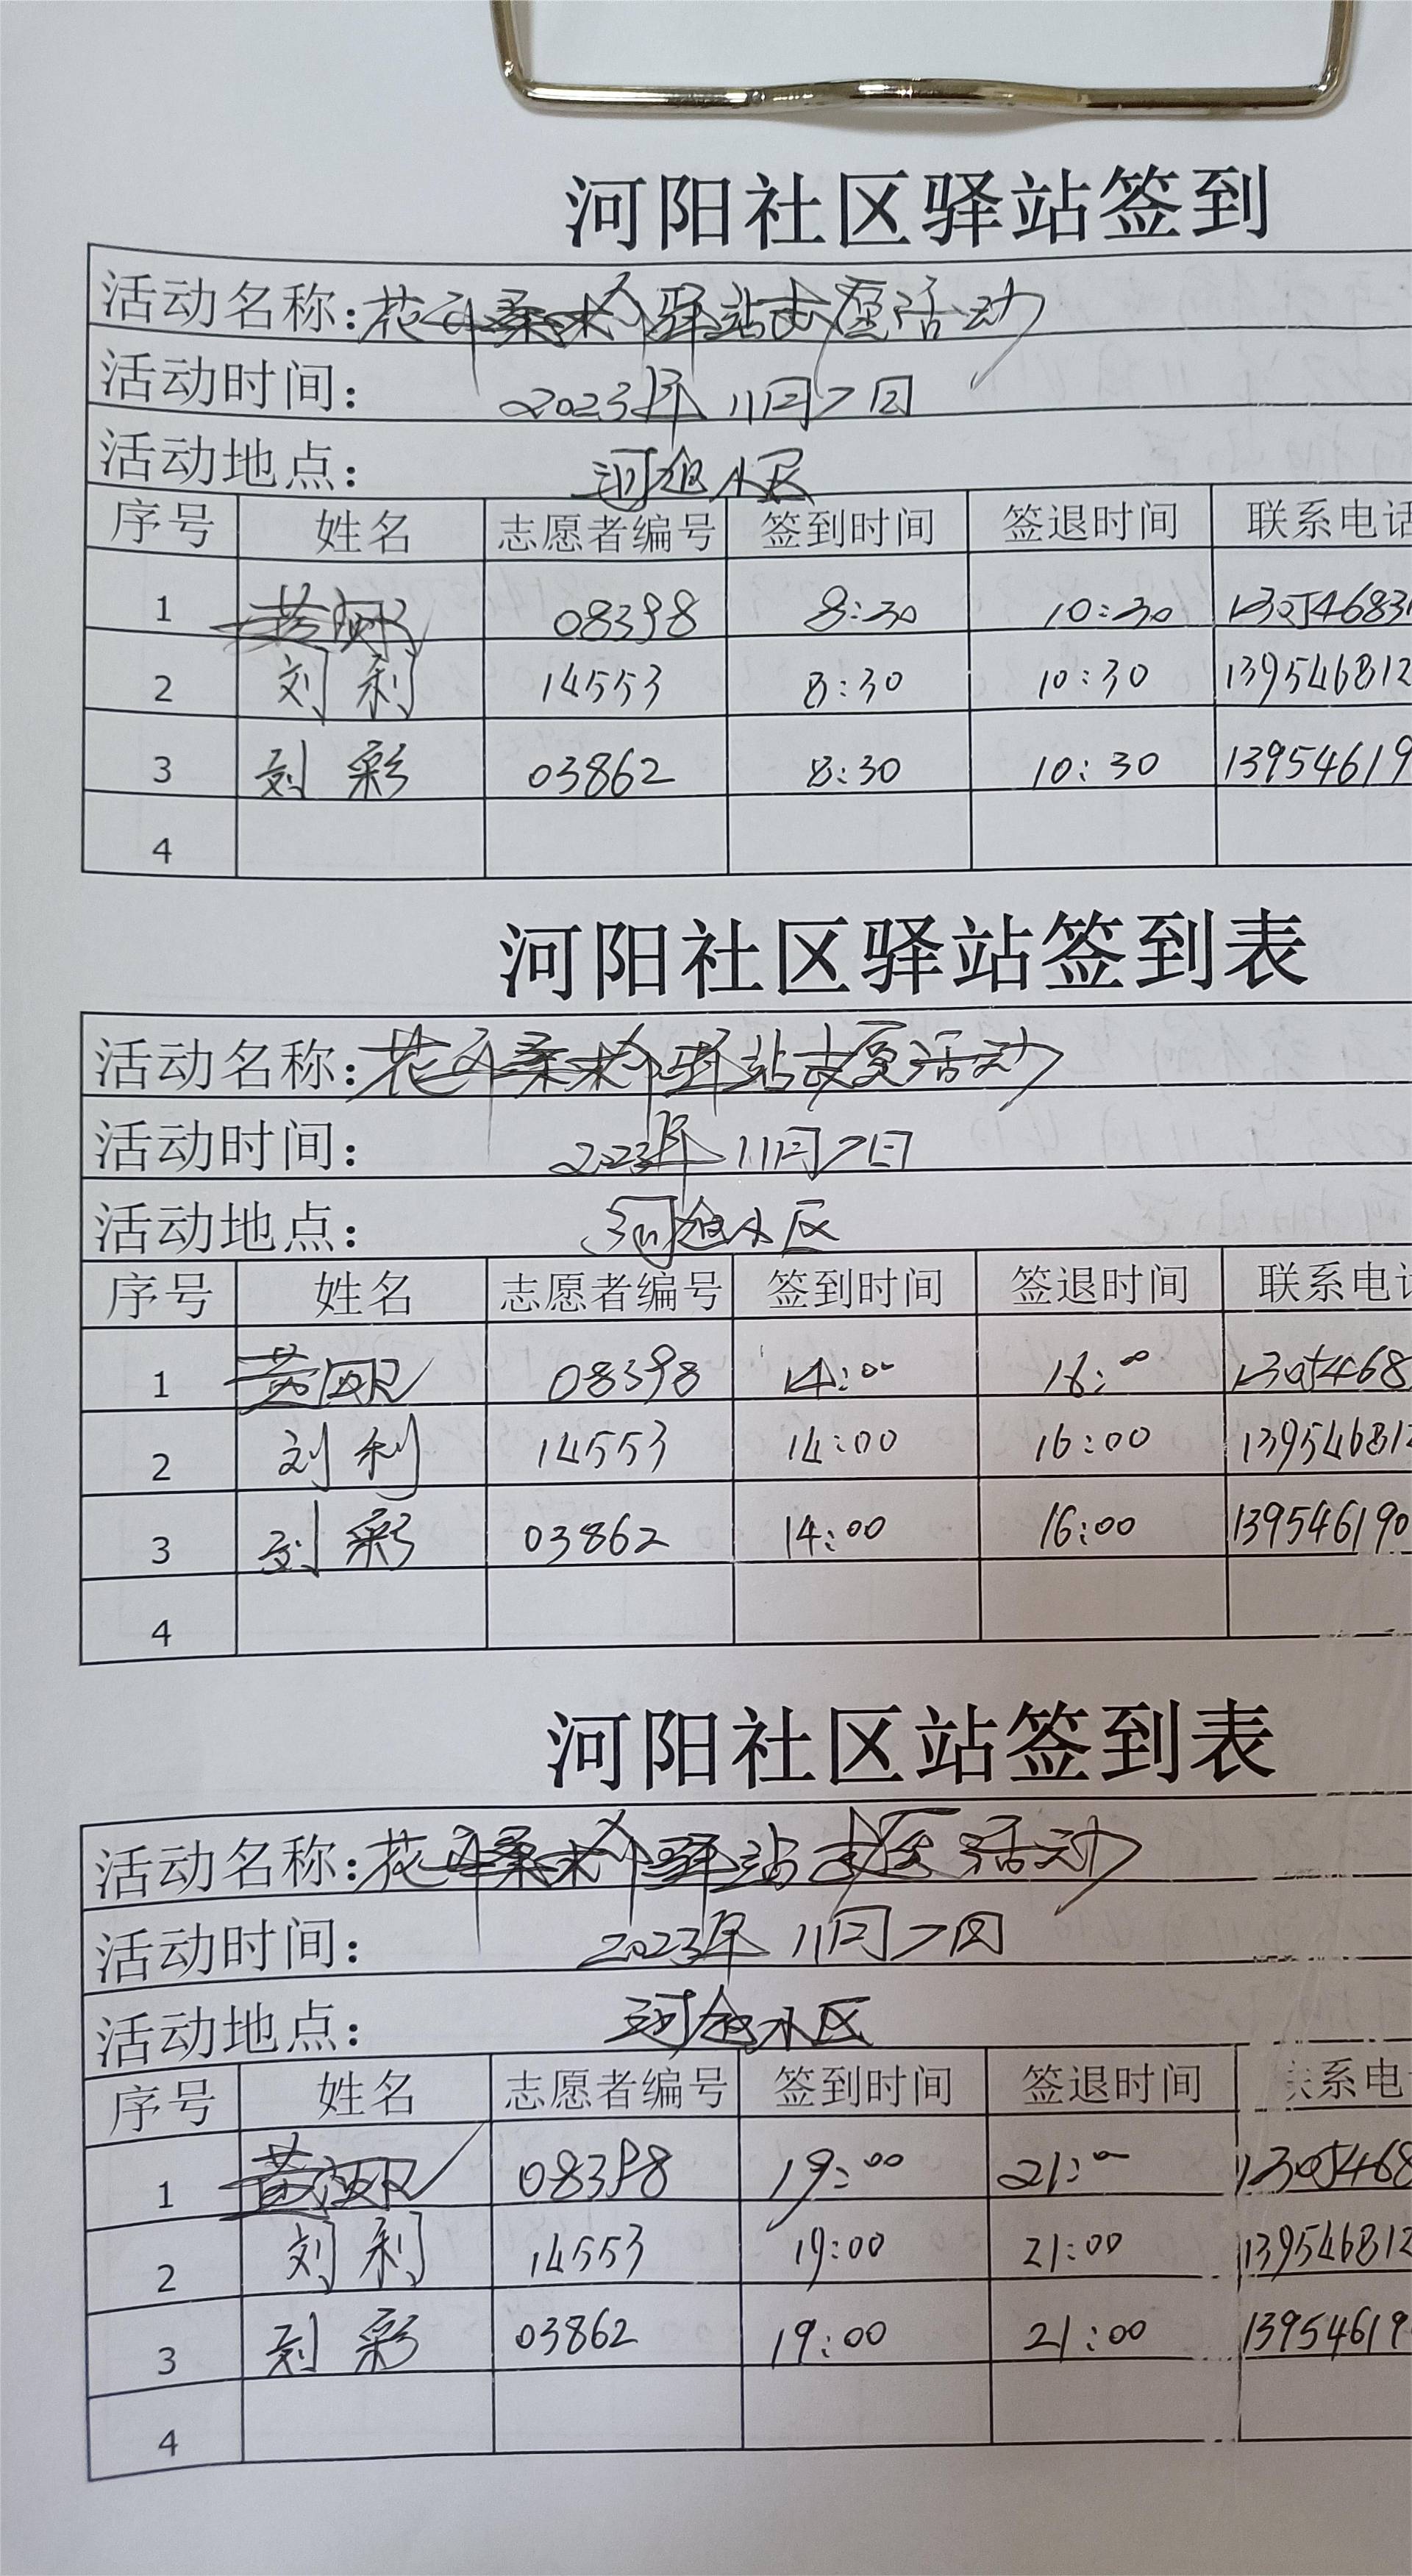 河阳社区驿站签到
活动名称：花 驿站志愿活动
活动时间： 2023年11月7日
活动地点： 河 小区
序号 姓名 志愿者编号 签到时间 签退时间 联系电话
1 黄 08398 8:30 10:30 13054683
2 刘利 14553 8:30 10:30 139546812
3 刘彩 03862 8:30 10:30 13954619
4
河阳社区驿站签到表
活动名称：花 驿站志愿活动
活动时间： 2023年11月7日
活动地点： 河 小区
序号 姓名 志愿者编号 签到时间 签退时间 联系电话
1 黄 08398 14:00 16:00 1305468
2 刘利 14553 14:00 16:00 139546812
3 刘彩 03862 14:00 16:00 139546190
4
河阳社区站签到表
活动名称：花 驿站志愿活动
活动时间： 2023年11月7日
活动地点： 河 小区
序号 姓名 志愿者编号 签到时间 签退时间 联系电
1 黄 08398 19:00 21:00 1305468
2 刘利 14553 19:00 21:00 139546812
3 刘彩 03862 19:00 21:00 13954619
4